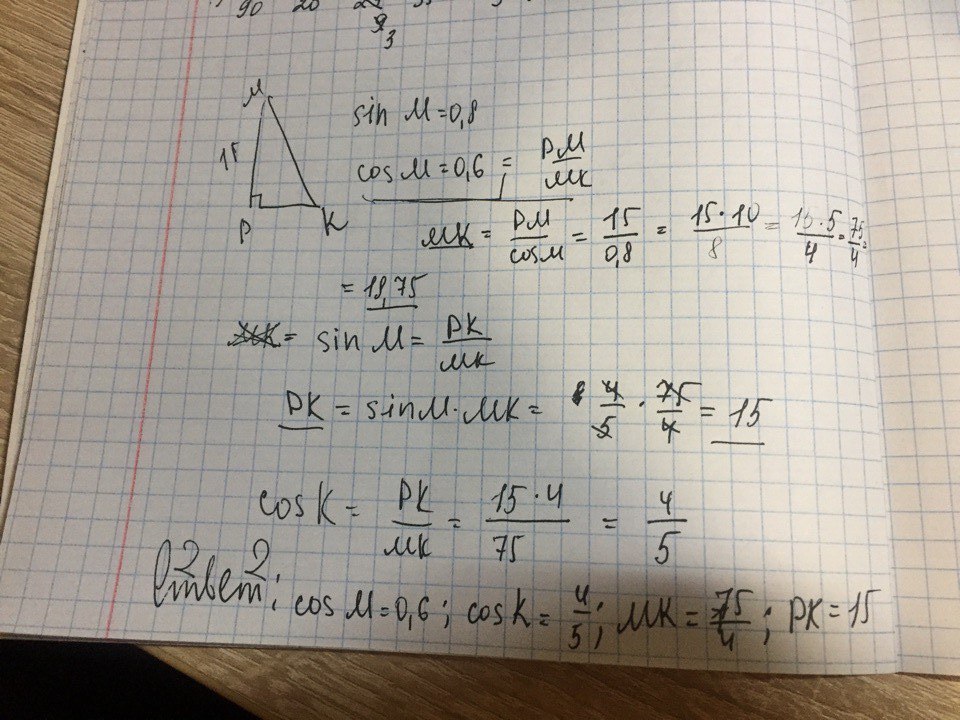 90 20
3
M
sin M = 0,8
15
cos M = 0,6 = PM/MK
P K
MK = PM/cos M = 15/0,8 = 15·10/8 = 15·5/4 = 75/4 =
= 18,75
= sin M = PK/MK
PK = sin M · MK = 4/5 · 75/4 = 15
cos K = PK/MK = 15·4/75 = 4/5
Ответ: cos M = 0,6; cos K = 4/5; MK = 75/4; PK = 15